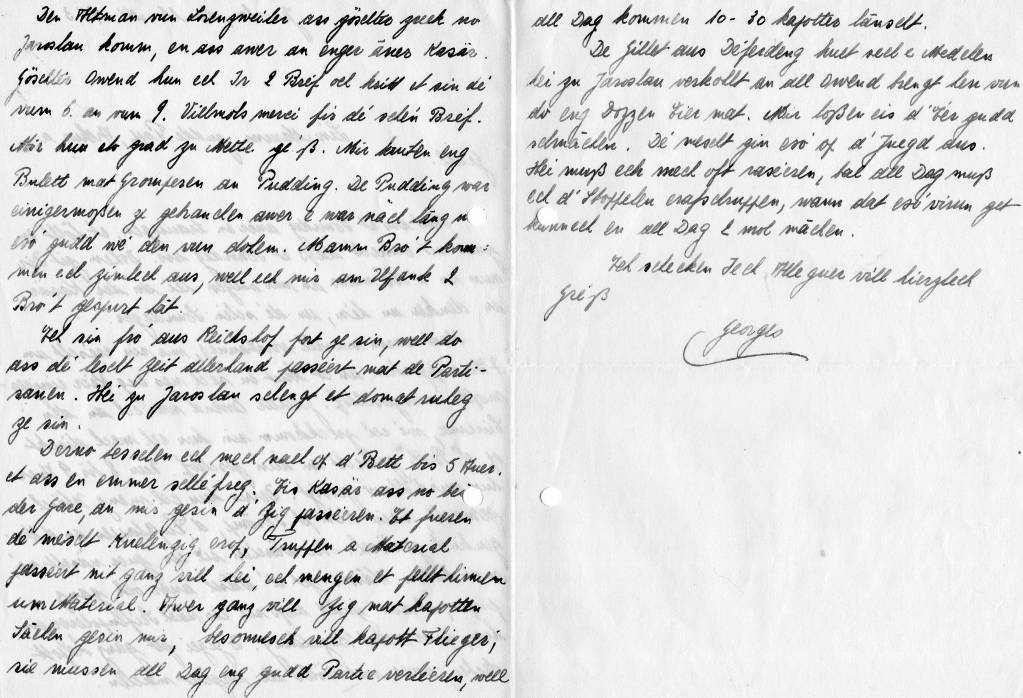 Den Altman vun Lorenzweiler ass göschter grek no
Jaroslau komm, en ass awer an enger äner Kasär.
Göschter Owend hun ech Ir 2 Bréf och kritt et sin dé
vum 6. an vum 9. Villmols merci fir dé schén Bréf.
Mir hun elo grad zu Mëtte geiß. Mir hauten eng
Bulett mat Grompesen an Pudding. De Pudding war
einigermoßen ze gebrauchen awer e war näch lang n
esó gudd wé den vun dohém. Mamm Bró't kom=
men ech zimlech aus, well ech mir am Ufank 2
Bró't gespuert hät.
Ech sin fró aus Reichshof fort ze sin, well do
ass dé lescht Zeit allerhand passéert mat de Parti-
sanen. Hei zu Jaroslau schengt et domat ruheg
ze sin.
Derno lesselen ech mech nach op d'Bett bis 5 Auer.
et ass en ëmmer schléfreg. Eis Kasär ass no bei
der Gare, an mir gesin d'Zig passéeren. Et fueren
dé méscht Kuelenzig erof, Truppen a Material
passéert nit ganz vill hei, ech mengen et feltt hinnen
um Material. Awer ganz vill Zig mat kapotten
Sächen gesin mir, besonnesch vill kapott Flieger,
sie mussen all Dag eng gudd Partie verléeren, well
all Dag kommen 10-30 kapotter länscht.
De Gillet aus Déferdeng huet sech e Medchen
hei zu Jaroslau verkollt an all Owend brengt hen vun
do eng Dozzen Eier mat. Mir loßen eis d'Eër gudd
schmächen. Dé mescht gin esó op d'Juegd aus.
Hei muß ech mech oft raséeren, bal all Dag muß
ech d'Stoppelen erofschruppen, wann dat esó virun get
kann ech en all Dag 2 mol mächen.
Ech schecken Iech Alleguer vill hierzlech
Gréiß
Georges